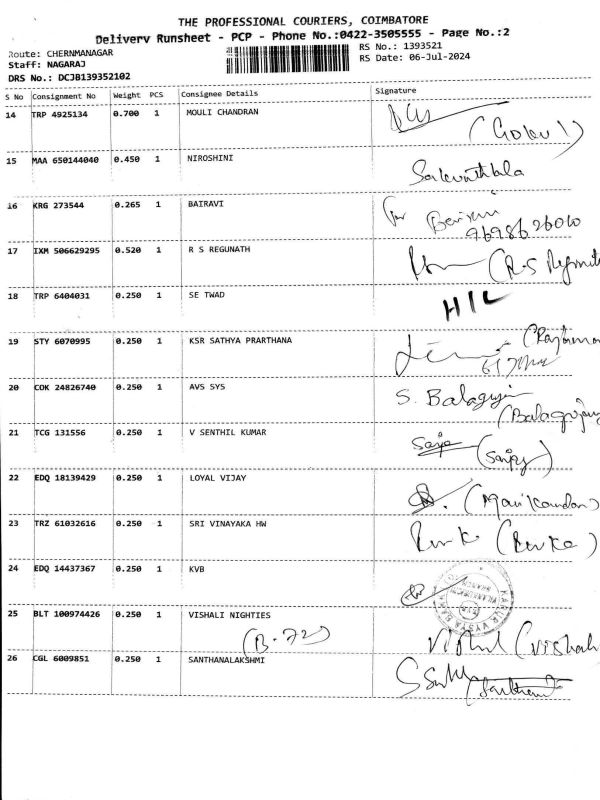 THE PROFESSIONAL COURIERS, COIMBATORE
Delivery Runsheet - PCP - Phone No.:0422-3505555 - Page No.:2
Route: CHERNMANAGAR
RS No.: 1393521
Staff: NAGARAJ
RS Date: 06-Jul-2024
DRS No.: DCJB139352102
S No Consignment No Weight PCS Consignee Details Signature
14 TRP 4925134 0.700 1 MOULI CHANDRAN
(Gokul)
15 MAA 650144040 0.450 1 NIROSHINI
Sakunthala
16 KRG 273544 0.265 1 BAIRAVI
for
9698626060
17 IXM 506629295 0.520 1 R S REGUNATH
(R.S
18 TRP 6404031 0.250 1 SE TWAD
HIL
19 STY 6070995 0.250 1 KSR SATHYA PRARTHANA
20 COK 24826740 0.250 1 AVS SYS
S. Balaguji
21 TCG 131556 0.250 1 V SENTHIL KUMAR
(Sanjay)
22 EDQ 18139429 0.250 1 LOYAL VIJAY
(Manikandan)
23 TRZ 61032616 0.250 1 SRI VINAYAKA HW
24 EDQ 14437367 0.250 1 KVB
KARUR VYSYA BANK
25 BLT 100974426 0.250 1 VISHALI NIGHTIES
(B-72)
(Vishali
26 CGL 6009851 0.250 1 SANTHANALAKSHMI